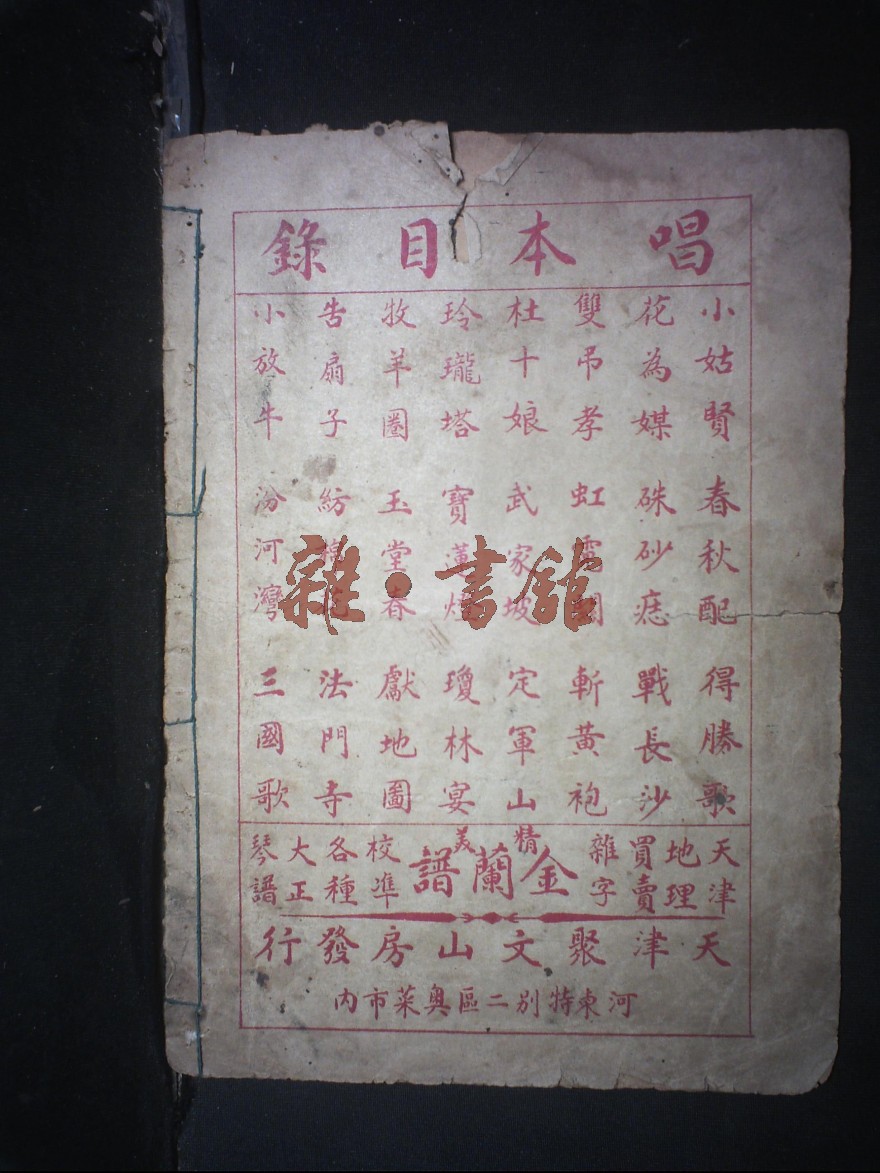 唱本目錄
小姑賢 春秋配 得勝歌
花為媒 硃砂痣 戰長沙
雙吊孝 虹霓關 斬黃袍
杜十娘 武家坡 定軍山
玲瓏塔 寶蓮燈 瓊林宴
牧羊圈 玉堂春 獻地圖
告扇子 紡 法門寺
小放牛 汾河灣 三國歌
天津
地理
買賣
雜字
精美
金蘭譜
校準
各種
大正
琴譜
天津聚文山房發行
河東特別二區奧菜市內
雜·書館